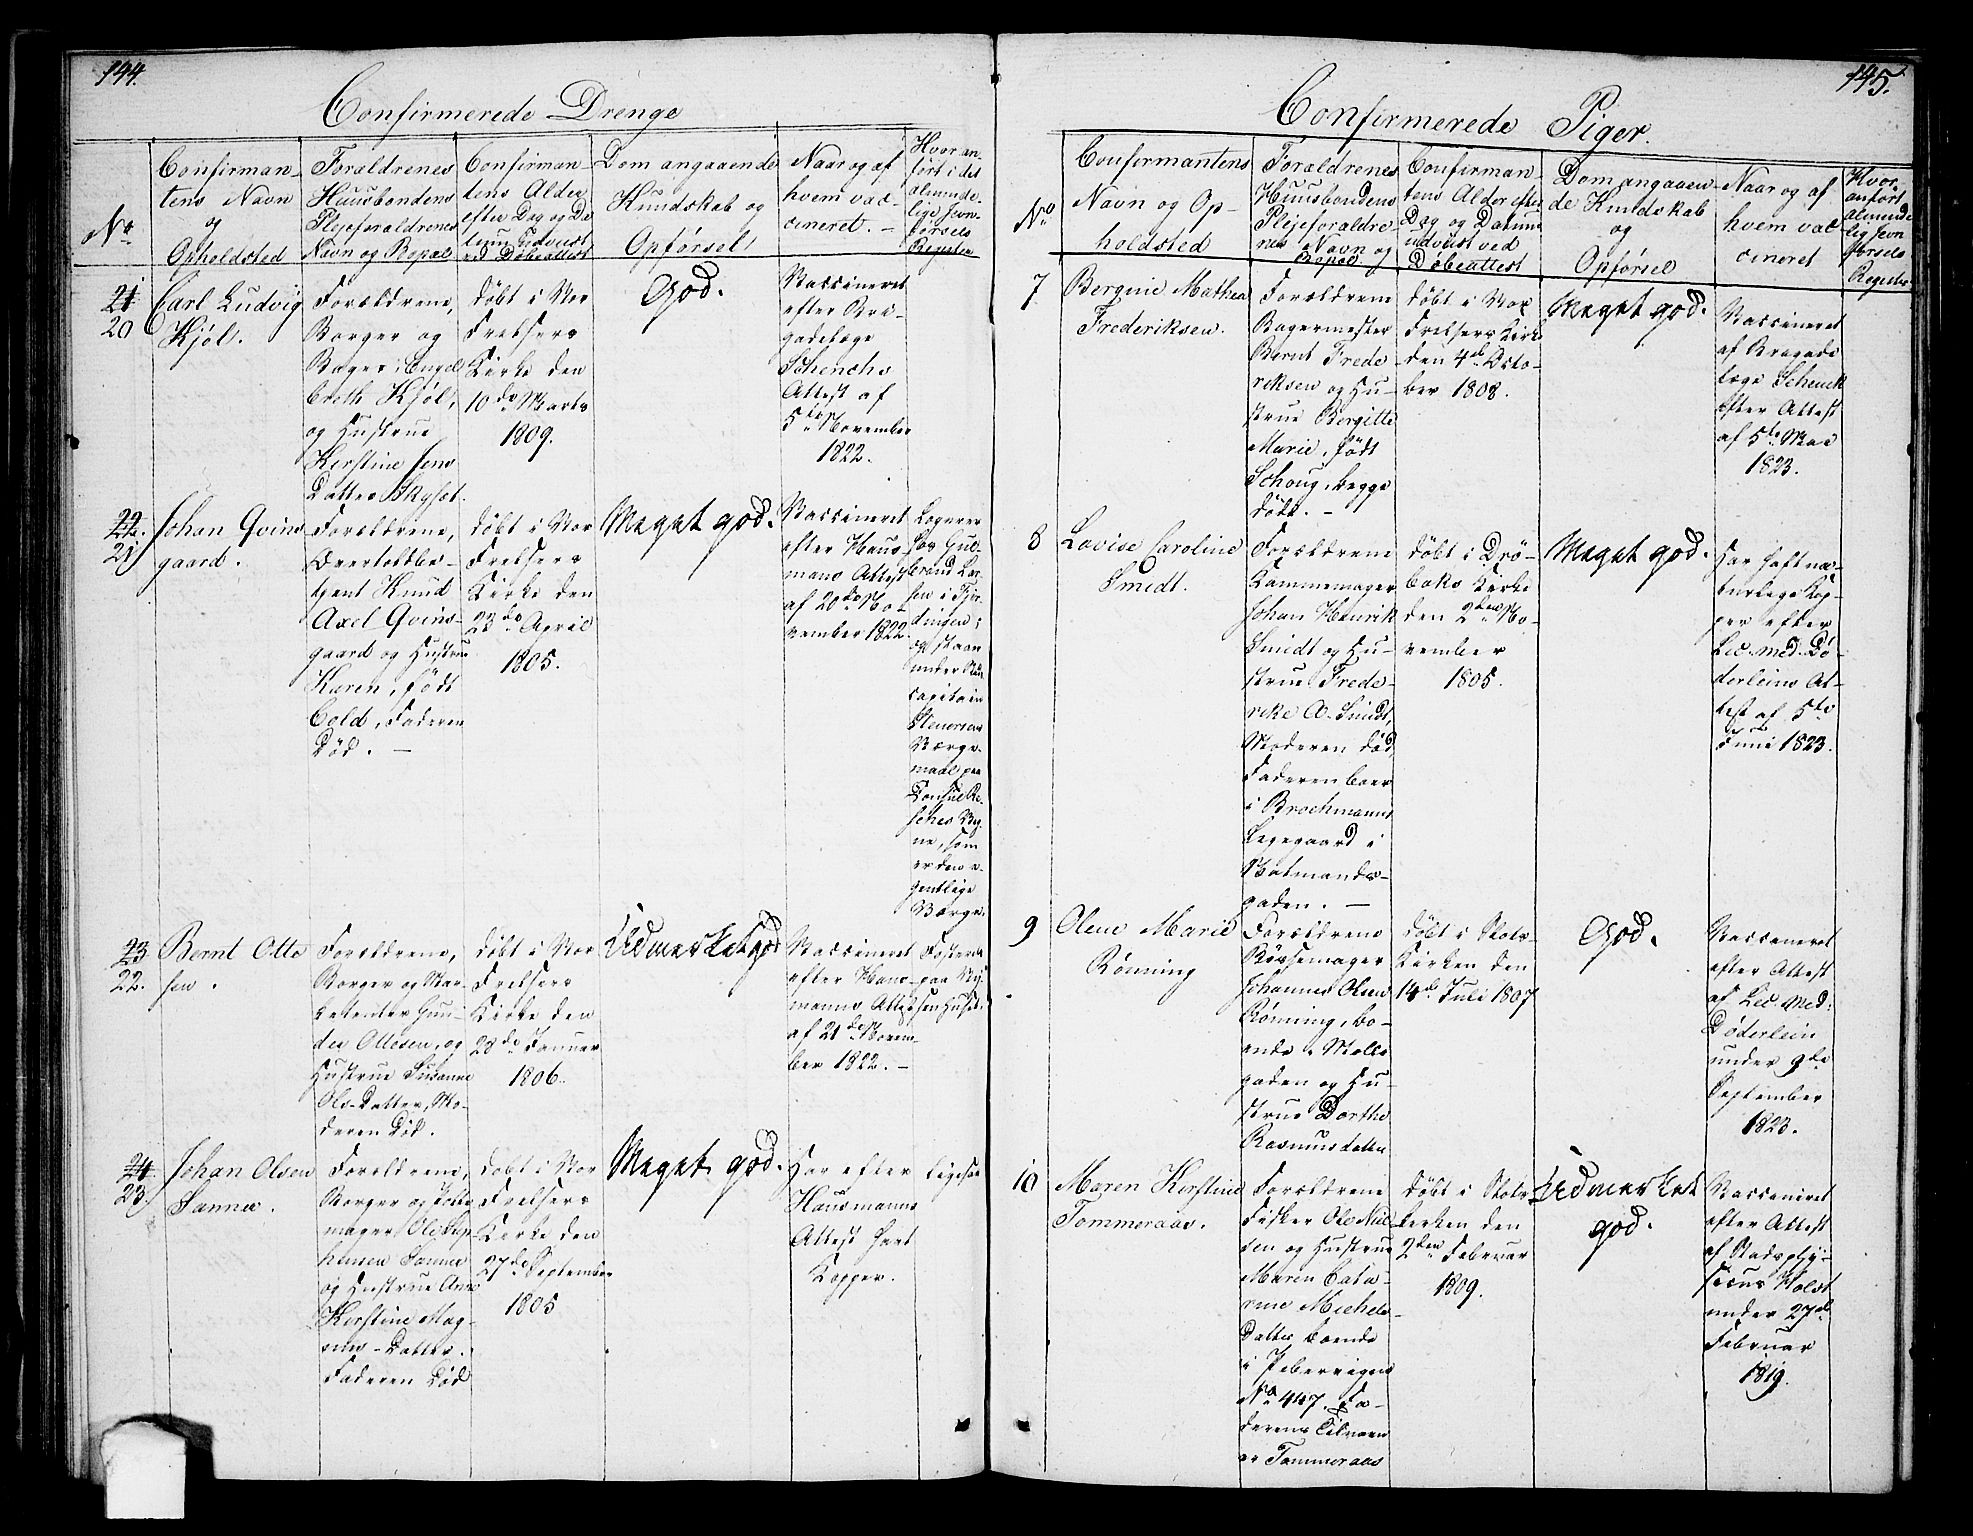 144.
Confirmerede Drenge
No
Confirman-
tens Navn
og
Opholdsted
Forældrenes
Huusbondens
Plejeforældrenes
Navn og Bopæl
Confirman-
tens Alder
efter Dag og Da
tum udviist
ved Døbeattest
Dom angaaende
Kundskab og
Opførsel
Naar og af
hvem vac-
cineret. -
Hvor an-
ført i det
alminde-
lige Jevn-
førsels
Register
21
20
Carl Ludvig
Kjöl.
Forældrene,
Borger og
Bager, Engel
breth Kjöl,
og Hustrue
Kirstine Jens
Datter
döbt i Vor
Frelsers
Kirke den
10de Marts
1809.
God.
Vaccineret
efter Bri-
gadelæge
Schencks
Attest af
5te November
1822.
22.
21
Johan Qvins
gaard.
Forældrene,
Overtoldbe-
tjent Knud
Axel Qvins-
gaard og Hustrue
Karen, född
Cold, Faderen
Död. -
döbt i Vor
Frelsers
Kirke den
23de April
1805.
Meget god.
Vaccineret
efter Haus-
manns Attest
af 20de No-
vember 1822.
Logerer
hos Gud-
brand Lar-
sen i Fjer-
dingen,
og staar
under
capitain
Værge-
maal paa
ne, som
er den e-
gentlige
Værge.
23
22.
Bernt Otte
sen.
Forældrene,
Borger og Mar-
ketenter Gun-
der Ottesen, og
Hustrue Susanne
Ols-Datter, Mo-
deren Död.
döbt i Vor
Frelsers
Kirke den
28de Januar
1806.
Udmærket god
Vaccineret
efter Haus-
manns Attest
af 21de Novem-
ber 1822. -
24
23.
Johan Olsen
Sanner.
Forældrene,
Borger og
mager Ole
hensen Sanner
og Hustrue Anne
Kirstine Mag-
nus-Datter.
Faderen Död
döbt i Vor
Frelsers
Kirke den
27de September
1805
Meget god.
Har efter
Hausmanns
Attest havt
Kopper.
ligesaa
145.
Confirmerede Piger.
No
Confirmantens
Navn og Op-
holdsted
Forældrenes
Huusbondens
Plejeforældre-
nes Navn og
Bopæl
Confirman-
tens Alder efter
Dag og Datum
udviist ved
Døbeattest
Dom angaaen-
de Kundskab
og
Opførsel
Naar og af
hvem vac-
cineret
Hvor
anført
alminde
lig Jevn
førsels
Register
7
Bergine Mathea
Frederiksen.
Forældrene
Bagermester
Bernt Frede
riksen og Hu-
strue Bergitte
Marie, född
Schoug, begge
döde. -
döbt i Vor
Frelsers Kirke
den 4de Octo-
ber 1808.
Meget god.
Vaccineret
af Bragade
læge Schenck
efter Attest
af 5te Mai
1823.
8
Lovise Caroline
Smidt.
Forældrene
Kammemager
Johan Henrik
Smidt og Hu-
strue Frede-
rike A. Smidt,
Moderen död,
Faderen boer
i Brochmanns
Legegaard i
Raadmands-
gaden. -
döbt i Drö-
baks Kirke
den 2den No-
vember
1805.
Meget god.
Har haft na-
turlige Kop-
per efter
Lic. med. Dö-
derleins At-
test af 5te
Juni 1823.
9
Olene Marie
Rönning
Forældrene
Börsemager
Johannes Olsen
Rönning, bo-
ende i Mölle
gaden og Hu-
strue Dorthe
Rasmusdatter
döbt i Slots-
Kirken den
14de Juli 1807
God.
Vaccineret
efter Attest
af Lic. med:
Döderlein
under 9de
September
1823.
10
Maren Kirstine
Tommeraas.
Forældrene
Fisker Ole Niel
sen og Hustrue
Maren Catha-
rine Michels-
Datter boende
i Pebervigen
No 447. Fa-
derens Tilnavn
er Tommeraas
döbt i Slots-
kirken den
2den Februar
1809.
Udmærket
god.
Vaccineret
efter Attest
af Stadsphy-
sicus Holst
under 27de
Februar
1819.